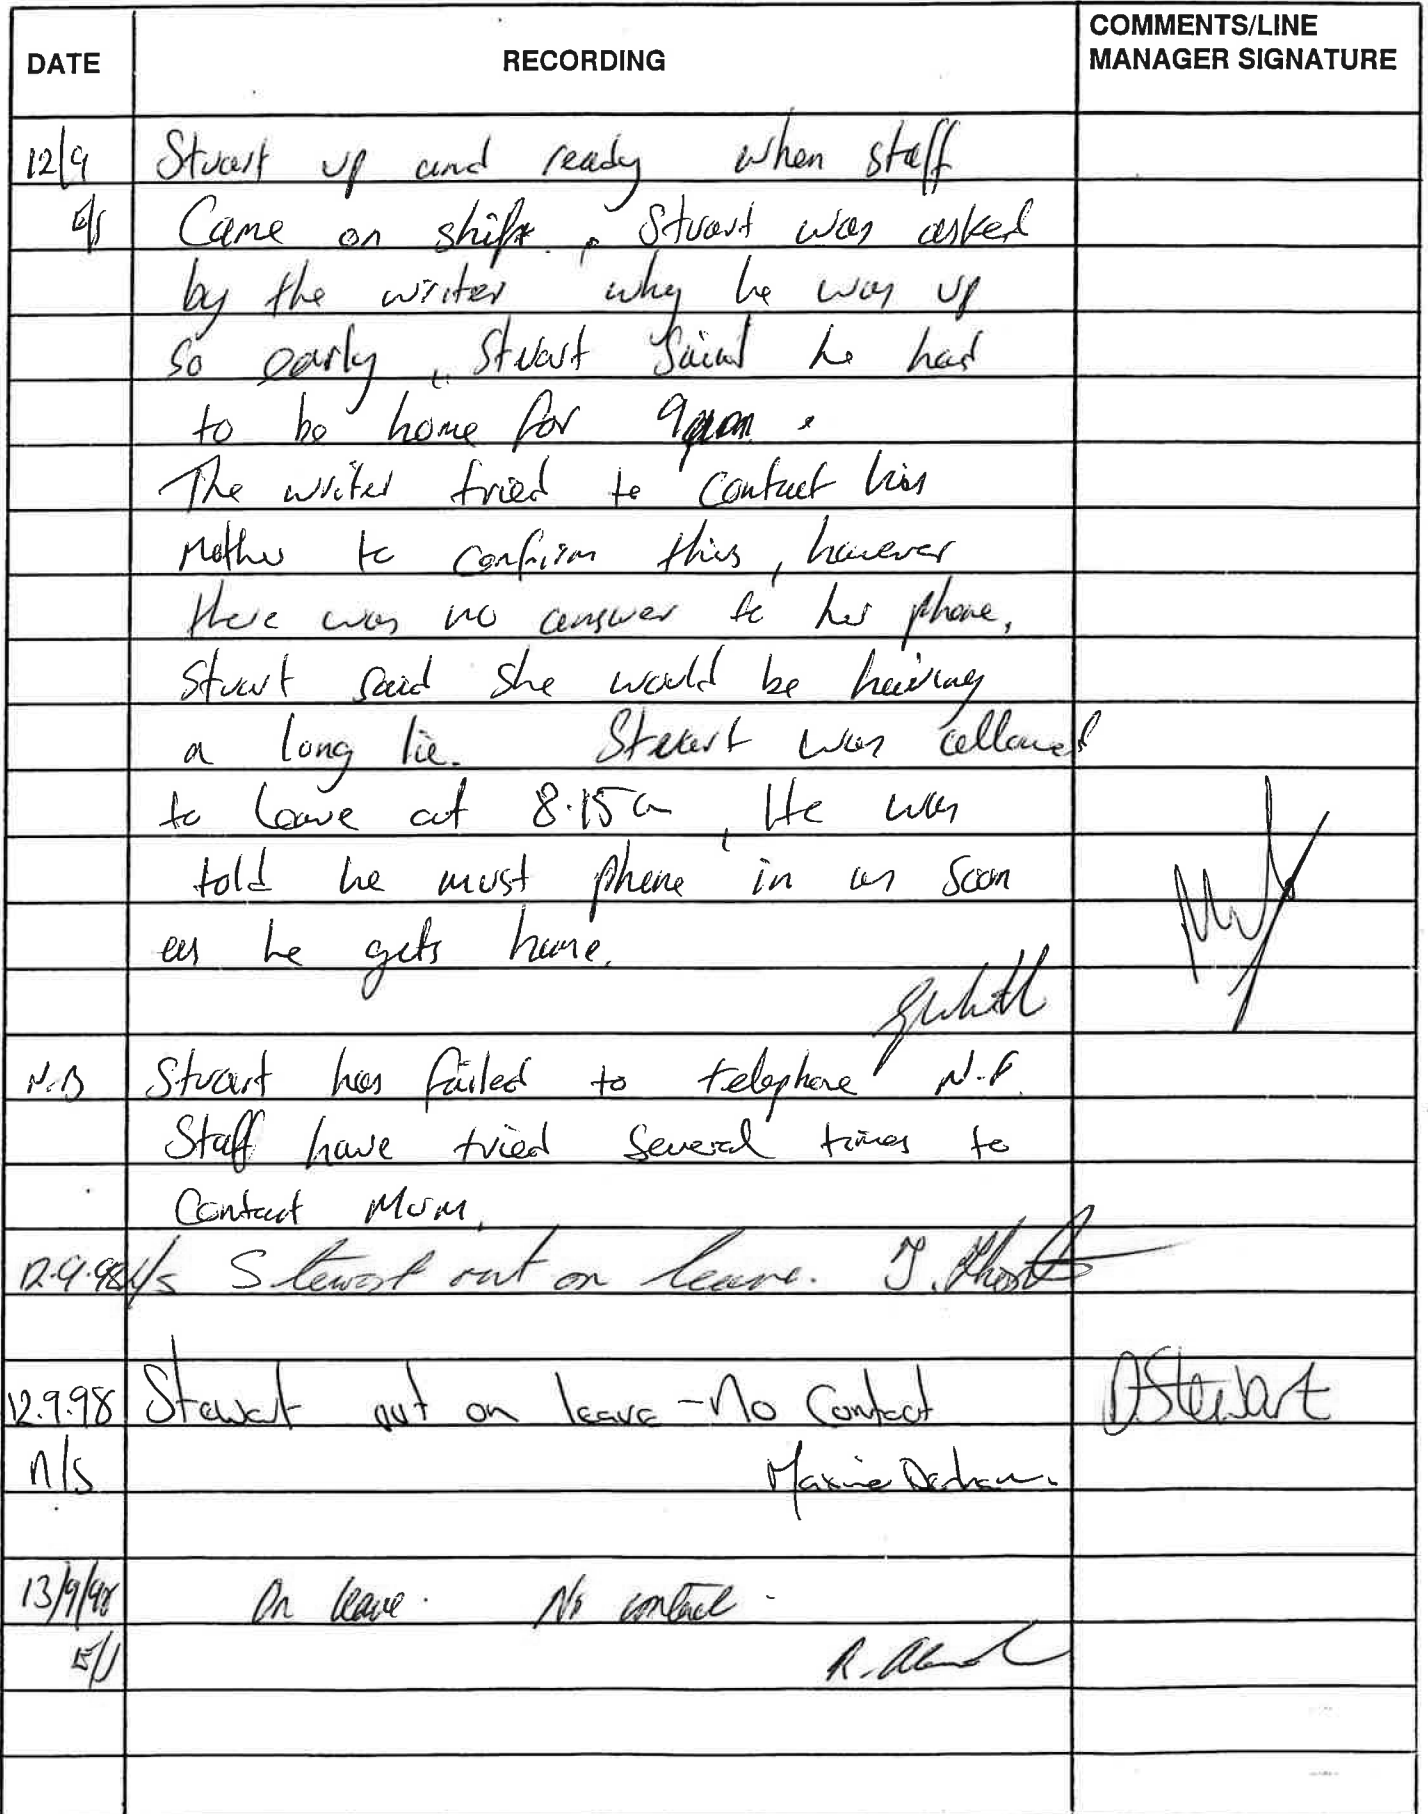 DATE RECORDING COMMENTS/LINE MANAGER SIGNATURE
12/9 Stuart up and ready when staff
E/S Came on shift. Stuart was asked
by the writer why he was up
so early, Stuart said he had
to be home for 9am.
The writer tried to contact his
Mother to confirm this, however
there was no answer to her phone,
Stuart said she would be having
a long lie. Stuart was allowed
to leave at 8.15a, He was
told he must phone in as soon
as he gets home.
N.B Stuart has failed to telephone N.P.
Staff have tried several times to
Contact Mum.
12.9.98 L/S Stewart out on leave. J.
12.9.98 Stewart out on leave - No Contact D Stewart
n/s Maxine
13/9/98 On leave. No contact.
E/S R.